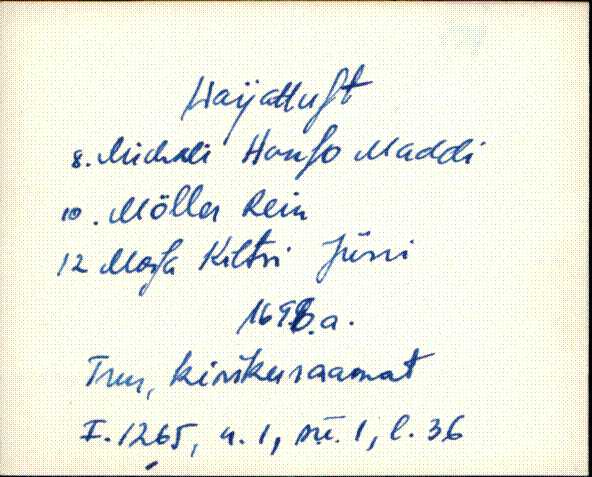 Waijattust
8. Michali Hanso Maddi
10. Möller Rein
12 Kiltri Jürri
169 a.
Trm, kirikuraamat
F. 1265, n. 1, sü. 1, l. 36